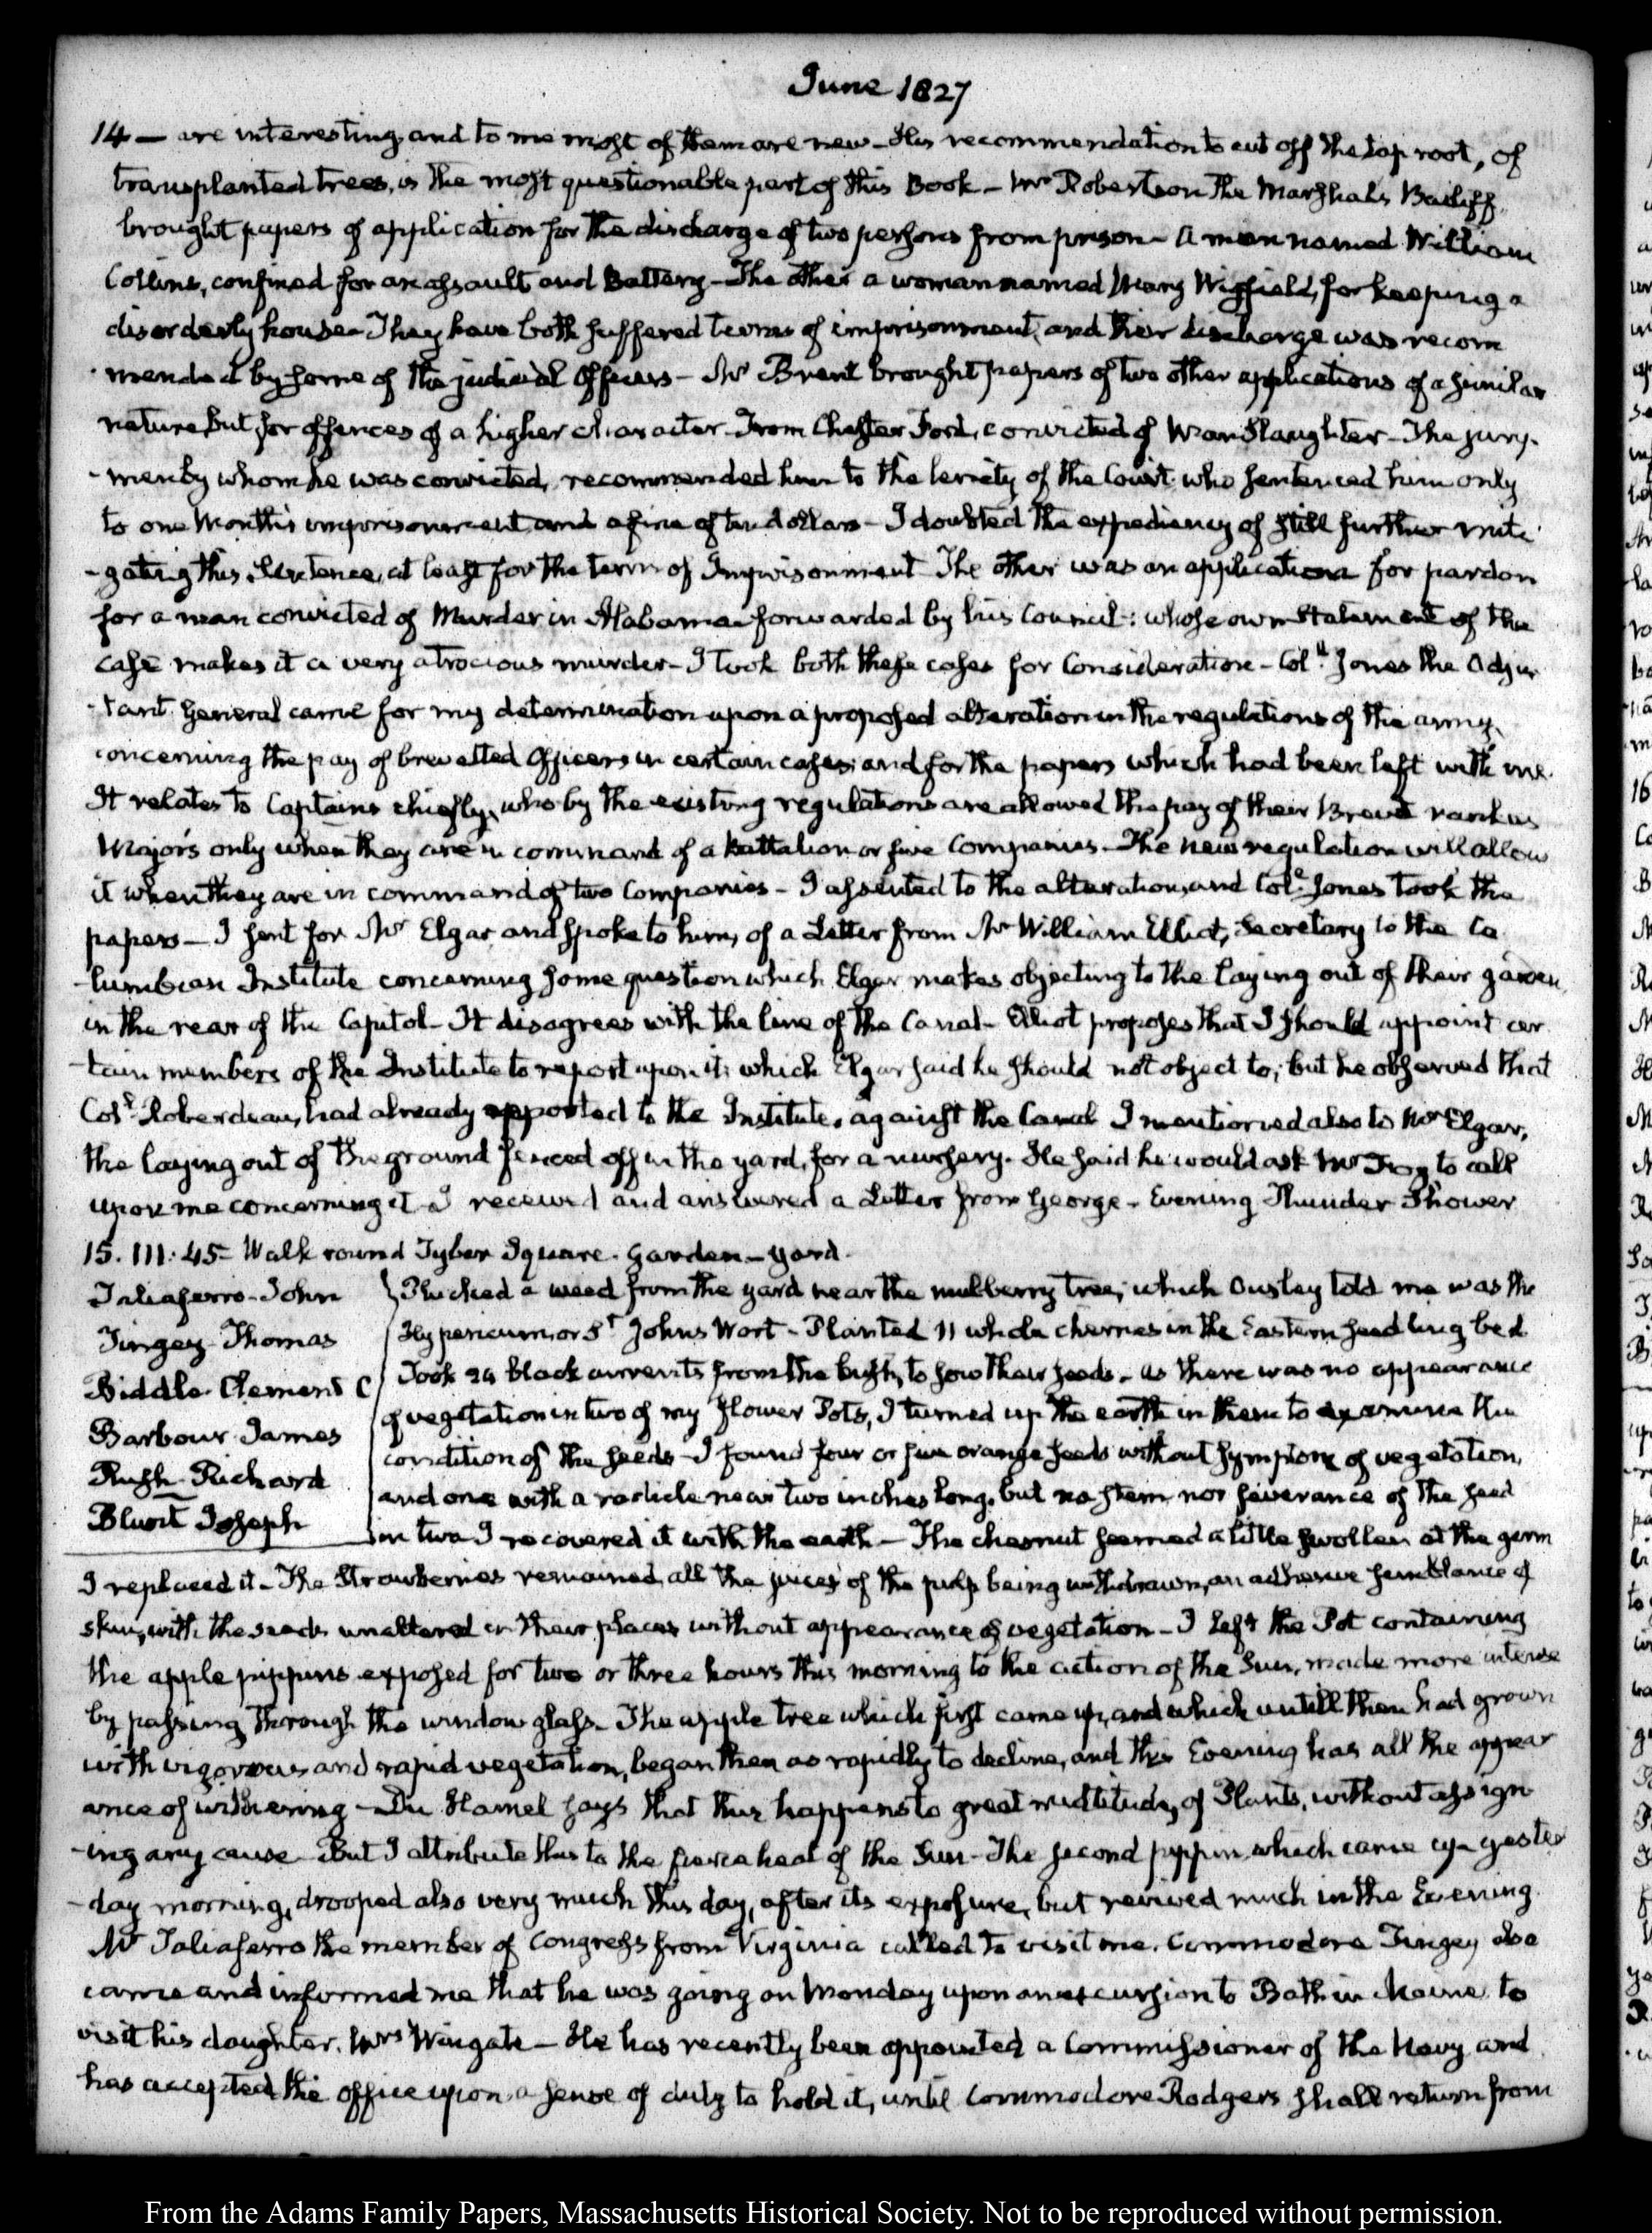 June 1827
14 — are interesting, and to me most of them are new — His recommendation to cut off the tap root, of
transplanted trees, is the most questionable part of this Book — Mr Robertson the Marshal's Bailiff,
brought papers of application for the discharge of two persons from prison — A man named William
Collins, confined for an assault and Battery — The other a woman named Mary Wigfield, for keeping a
disorderly house — They have both suffered terms of imprisonment, and their discharge was recom
mended by some of the judicial Officers — Mr Brent brought papers of two other applications of a similar
nature but for offences of a higher character — From Chester Ford, convicted of Manslaughter — The jury-
-men by whom he was convicted, recommended him to the lenity of the Court who sentenced him only
to one Month's imprisonment and a fine of ten dollars — I doubted the expediency of still further miti
-gating this Sentence, at least for the term of Imprisonment The other was an application for pardon
for a man convicted of Murder in Alabama forwarded by his Council: whose own statement of the
case makes it a very atrocious murder — I took both these cases for Consideration — Coll. Jones the Adju
-tant General came for my determination upon a proposed alteration in the regulations of the army,
concerning the pay of brevetted Officers in certain cases; and for the papers which had been left with me.
It relates to Captains chiefly, who by the existing regulations are allowed the pay of their Brevet rank as
Majors only when they are in command of a battalion or five Companies — The new regulation will allow
it when they are in command of two Companies — I assented to the alteration, and Coll. Jones took the
papers — I sent for Mr Elgar and spoke to him, of a Letter from Mr William Elliot, Secretary to the Co
-lumbian Institute concerning some question which Elgar makes objecting to the laying out of their garden,
in the rear of the Capitol — It disagrees with the line of the Canal — Elliot proposes that I should appoint cer
-tain members of the Institute to report upon it; which Elgar said he should not object to; but he observed that
Coll. Roberdeau, had already reported to the Institute, against the Canal I mentioned also to Mr Elgar,
the laying out of the ground fenced off in the yard, for a nursery. He said he would ask Mr Foy to call
upon me concerning it — I received and answered a Letter from George — Evening Thunder Shower
15. III: 45 — Walk round Tyber Square. Garden — yard.
Taliaferro — John
Tingey — Thomas
Biddle — Clement C
Barbour James
Rush — Richard
Blunt Joseph
Plucked a weed from the yard near the mulberry tree; which Ousley told me was the
Hypericum, or St. Johns Wort — Planted 11 whole cherries in the Eastern seedling bed
Took 24 black currents from the bush, to sow their seeds. As there was no appearance
of vegetation in two of my Flower Pots, I turned up the earth in them to examine the
condition of the seeds — I found four or five orange seeds without symptom of vegetation,
and one with a radicle near two inches long, but no stem, nor severance of the seed
in two I recovered it with the earth — The chesnut seemed a little swollen at the germ
I replaced it — The Strawberries remained, all the juices of the pulp being withdrawn, an adhesive semblance of
skin, with the seeds unaltered in their places without appearance of vegetation — I left the Pot containing
the apple pippins exposed for two or three hours this morning to the action of the Sun, made more intense
by passing through the window glass — The apple tree which first came up, and which untill then had grown
with vigorous and rapid vegetation, began then as rapidly to decline, and this Evening has all the appear
ance of withering — Du Hamel says that this happens to great multitudes of Plants, without assign
-ing any cause — But I attribute this to the fierce heat of the Sun — The second pippin, which came up yester
-day morning, drooped also very much this day, after its exposure, but revived much in the Evening
Mr Taliaferro the member of Congress from Virginia called to visit me. Commodore Tingey also
came and informed me that he was going on Monday upon an excursion to Bath in Maine to
visit his daughter. Mrs Wingate — He has recently been appointed a Commissioner of the Navy and
has accepted the office upon a sense of duty to hold it, until Commodore Rodgers shall return from
From the Adams Family Papers, Massachusetts Historical Society. Not to be reproduced without permission.